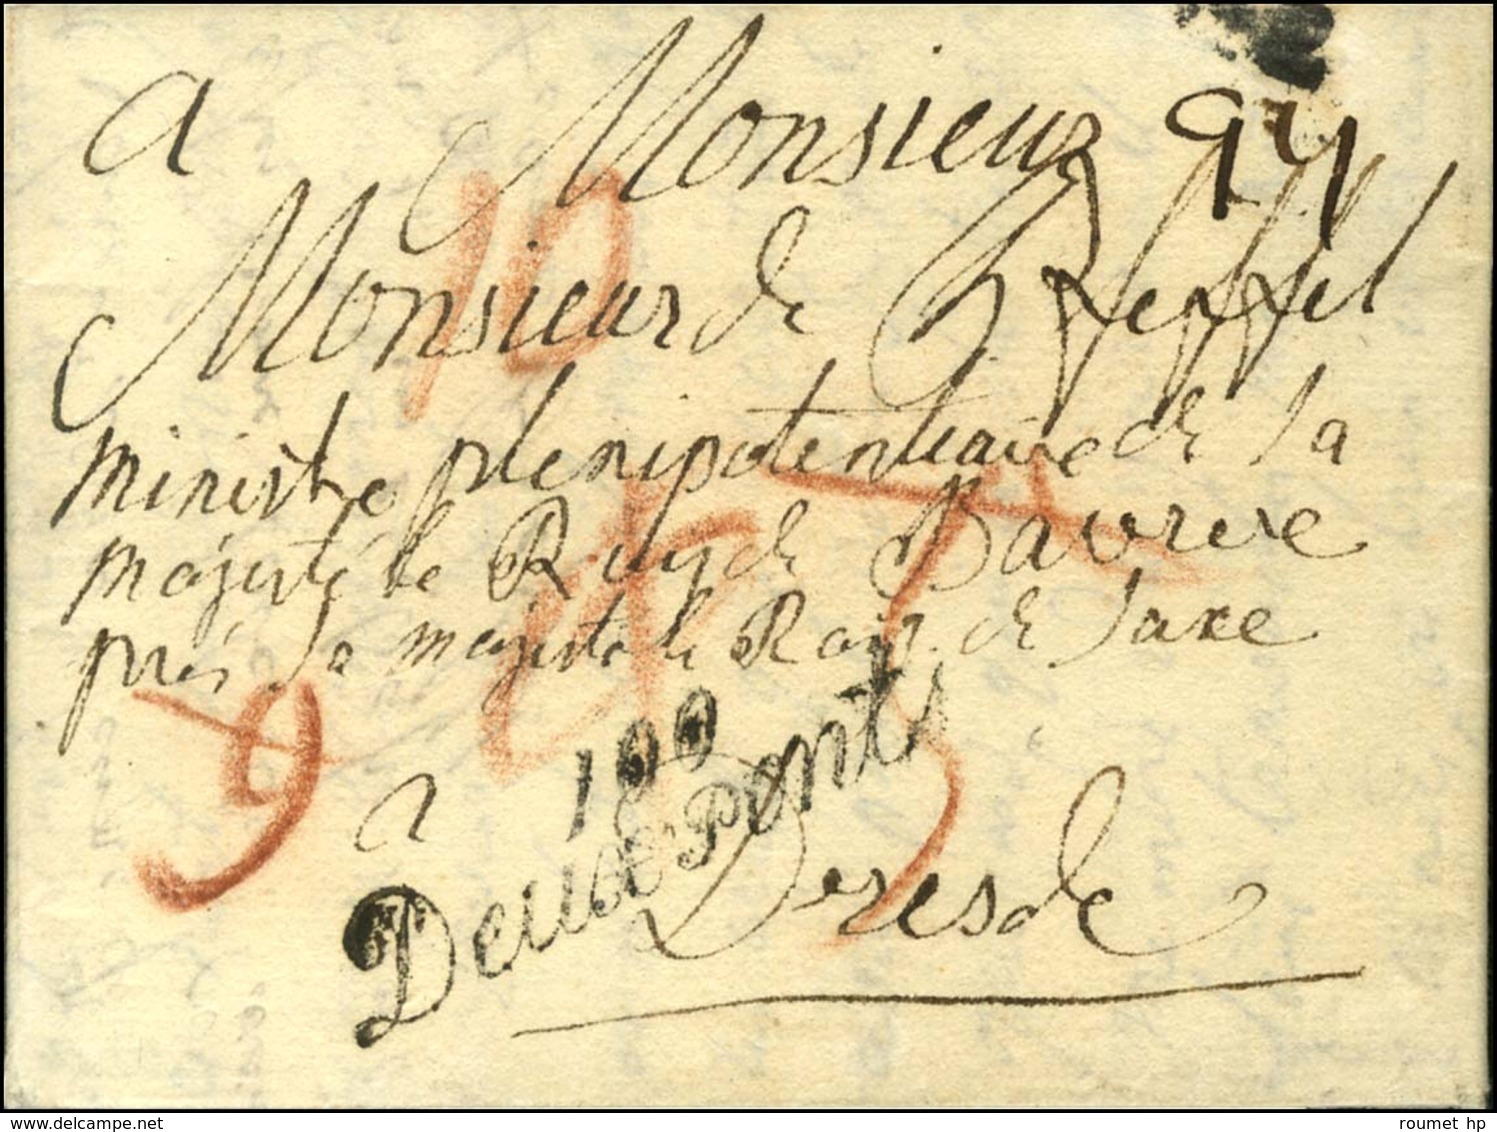 a Monsieur
Monsieur de Pfeffel
ministre plenipotentiaire de Sa
majesté le Roy de Baviere
près Sa majesté le Roi de Saxe
a
100
Deux Ponts
Dresde
10
9
delcampe.net
roumet hp